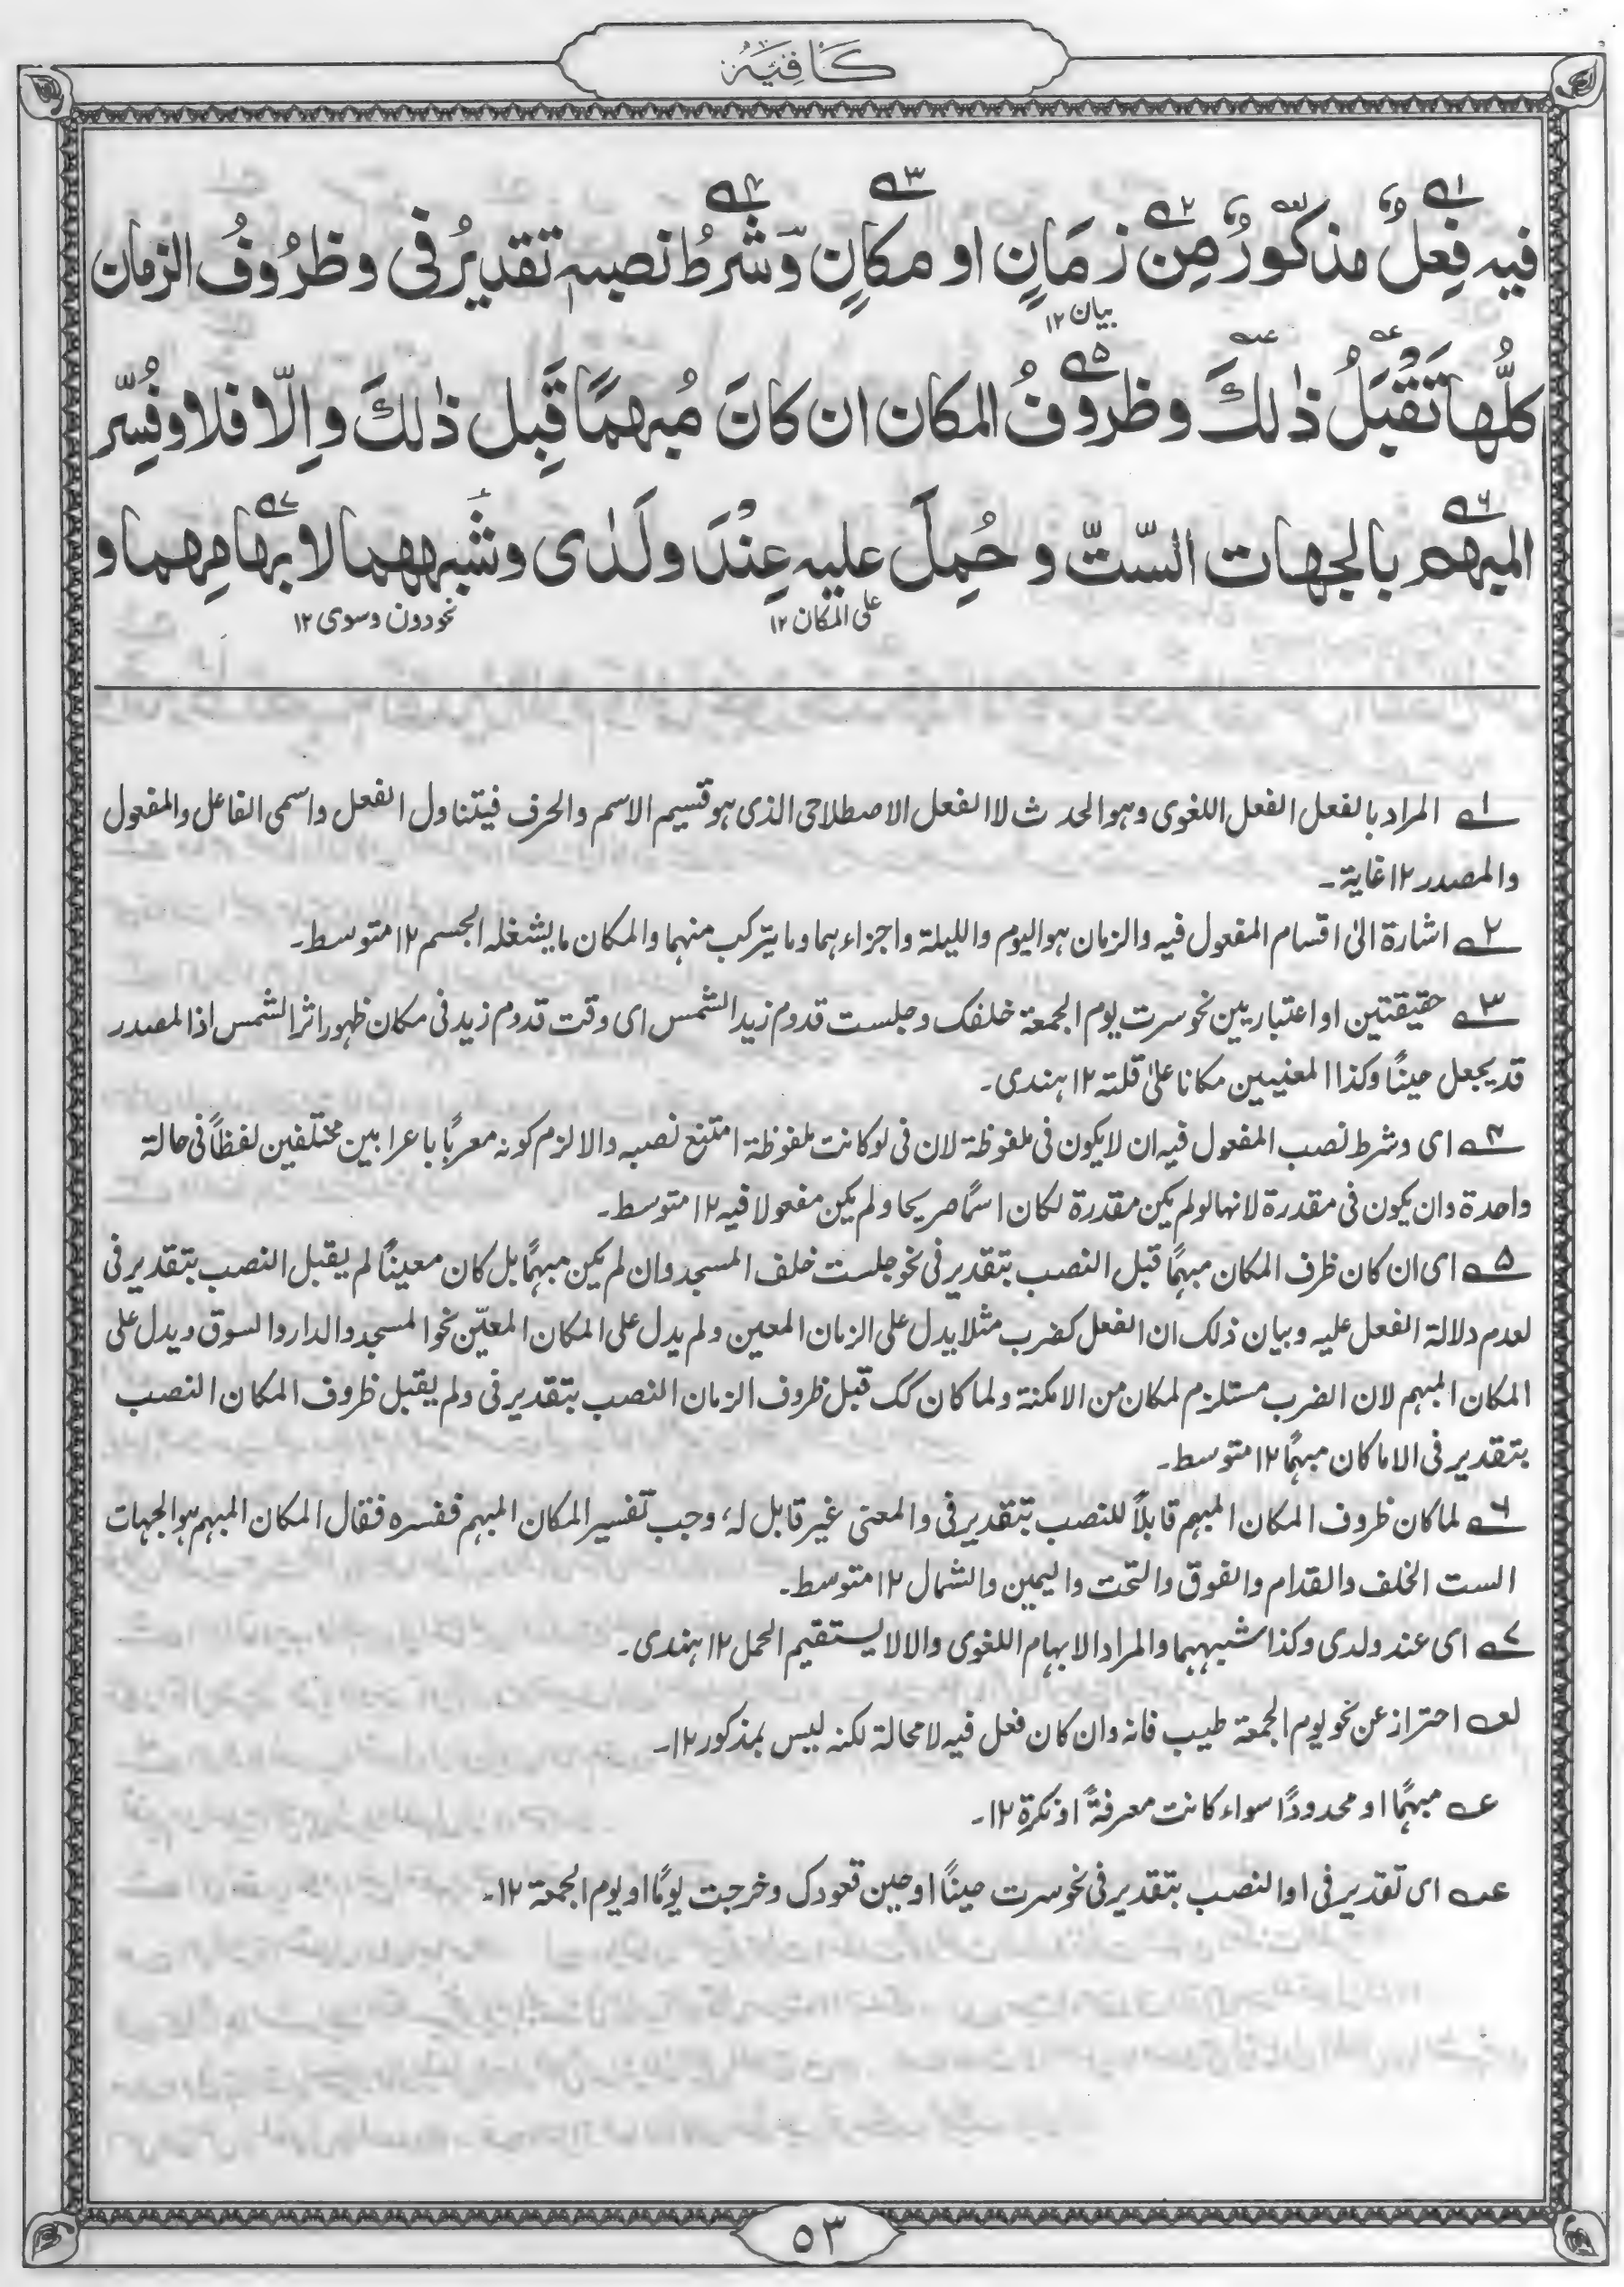 كَافِيَة
فيه فِعلٌ مذكورٌ مِن زمَانٍ او مكانٍ وَّشرطُ نصبهٖ تقديرُ فى وظرُوفُ الزمان
بيان ١٢
كلُّها تَقْبَلُ ذٰلكَ وظروفُ المكان ان كانَ مُبهمًا قَبِل ذٰلكَ واِلّا فلا وفُسّر
المبهم بالجهات السّتّ و حُمِلَ عليه عِنْدَ ولَدٰى وشَبههما لابهامِهما و
على المكان ١٢
نحو دون وسوى ١٢
١ المراد بالفعل الفعل اللغوى وهو الحدث لا الفعل الاصطلاحى الذى هو قسيم الاسم والحرف فيتناول الفعل واسمى الفاعل والمفعول
والمصدر ١٢ غاية۔
٢ اشارة الىٰ اقسام المفعول فيه والزمان هو اليوم والليلة واجزاءهما وما يتركب منهما والمكان ما يشغله الجسم ١٢ متوسط۔
٣ حقيقتين او اعتباريين نحو سرت يوم الجمعة خلفك وجلست قدوم زيد الشمس اى وقت قدوم زيد فى مكان ظهور اثر الشمس اذا لمصدر
قد يجعل حينًا وكذا المعنيين مكانا علىٰ قلته ١٢ هندى۔
٤ اى وشرط نصب المفعول فيه ان لا يكون فى ملفوظة لان فى لو كانت ملفوظة امتنع نصبه والا لزم كونه معربًا باعرابين مختلفين لفظاً فى حالة
واحدة وان يكون فى مقدرة لانها لو لم يكن مقدرة لكان اسمًا صريحا ولم يكن مفعولا فيه ١٢ متوسط۔
۵ اى ان كان ظرف المكان مبهمًا قبل النصب بتقدير فى نحو جلست خلف المسجد وان لم يكن مبهمًا بل كان معينًا لم يقبل النصب بتقدير فى
لعدم دلالة الفعل عليه وبيان ذلك ان الفعل كضرب مثلا يدل على الزمان المعين ولم يدل على المكان المعيّن نحو المسجد والدار والسوق ويدل على
المكان المبهم لان الضرب مستلزم لمكان من الامكنة ولما كان كك قبل ظروف الزمان النصب بتقدير فى ولم يقبل ظروف المكان النصب
بتقدير فى الا ما كان مبهمًا ١٢ متوسط۔
٦ لما كان ظروف المكان المبهم قابلاً للنصب بتقدير فى والمعنى غير قابل لهٗ وجب تفسير المكان المبهم ففسره فقال المكان المبهم هو الجهات
الست الخلف والقدام والفوق والتحت واليمين والشمال ١٢ متوسط۔
٧ اى عند ولدى وكذا شبههما والمراد الابهام اللغوى والا لا يستقيم الحمل ١٢ هندى۔
لعه احتراز عن نحو يوم الجمعة طيب فانه وان كان فعل فيه لا محالة لكنه ليس بمذكور ١٢۔
عه مبهمًا او محدودًا سواء كانت معرفةً او نكرة ١٢۔
عه اى تقدير فى او النصب بتقدير فى نحو سرت حينًا او حين قعودك وخرجت يومًا او يوم الجمعة ١٢۔
٥٣